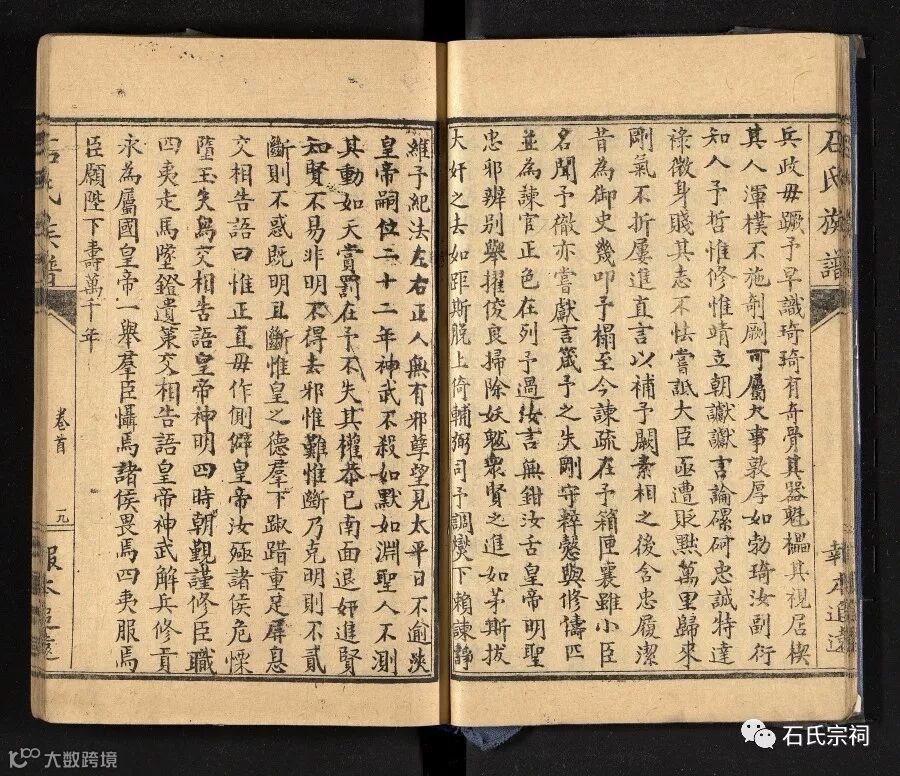 石氏族譜
兵政毋蹶予早識琦琦有奇骨其器魁櫑其視居楔
其人渾樸不施剞劂可屬大事敦厚如勃琦汝副衍
知人予哲惟修惟靖立朝讞讞言論磥砢忠誠特達
祿微身賤其志不怯嘗詆大臣亟遭貶黜萬里歸來
剛氣不折屢進直言以補予闕素相之後含忠履潔
昔為御史幾叩予榻至今諫疏在予箱匣襄雖小臣
名聞予徹亦嘗獻言箴予之失剛守粹慤與修儔匹
並為諫官正色在列予過汝言無鉗汝舌皇帝明聖
忠邪辨別舉擢俊良掃除妖魃衆賢之進如茅斯拔
大奸之去如距斯脫上倚輔弼司予調燮下賴諫諍
報本追遠
維予紀法左右正人無有邪孽望見太平日不逾浹
皇帝嗣位二十二年神武不殺如默如淵聖人不測
其動如天賞罰在予不失其權恭已南面退奸進賢
知賢不易非明不得去邪惟難惟斷乃克明則不貳
斷則不惑既明且斷惟皇之德羣下踧踖重足屏息
交相告語曰惟正直毋作側僻皇帝汝殛諸侯危慄
墮玉失舄交相告語皇帝神明四時朝覲謹修臣職
四夷走馬墜鐙遺策交相告語皇帝神武解兵修貢
永為屬國皇帝一舉羣臣懾焉諸侯畏焉四夷服焉
臣願陛下壽萬千年
卷首
九
石氏族譜
報本追遠
石氏宗祠
大数跨境